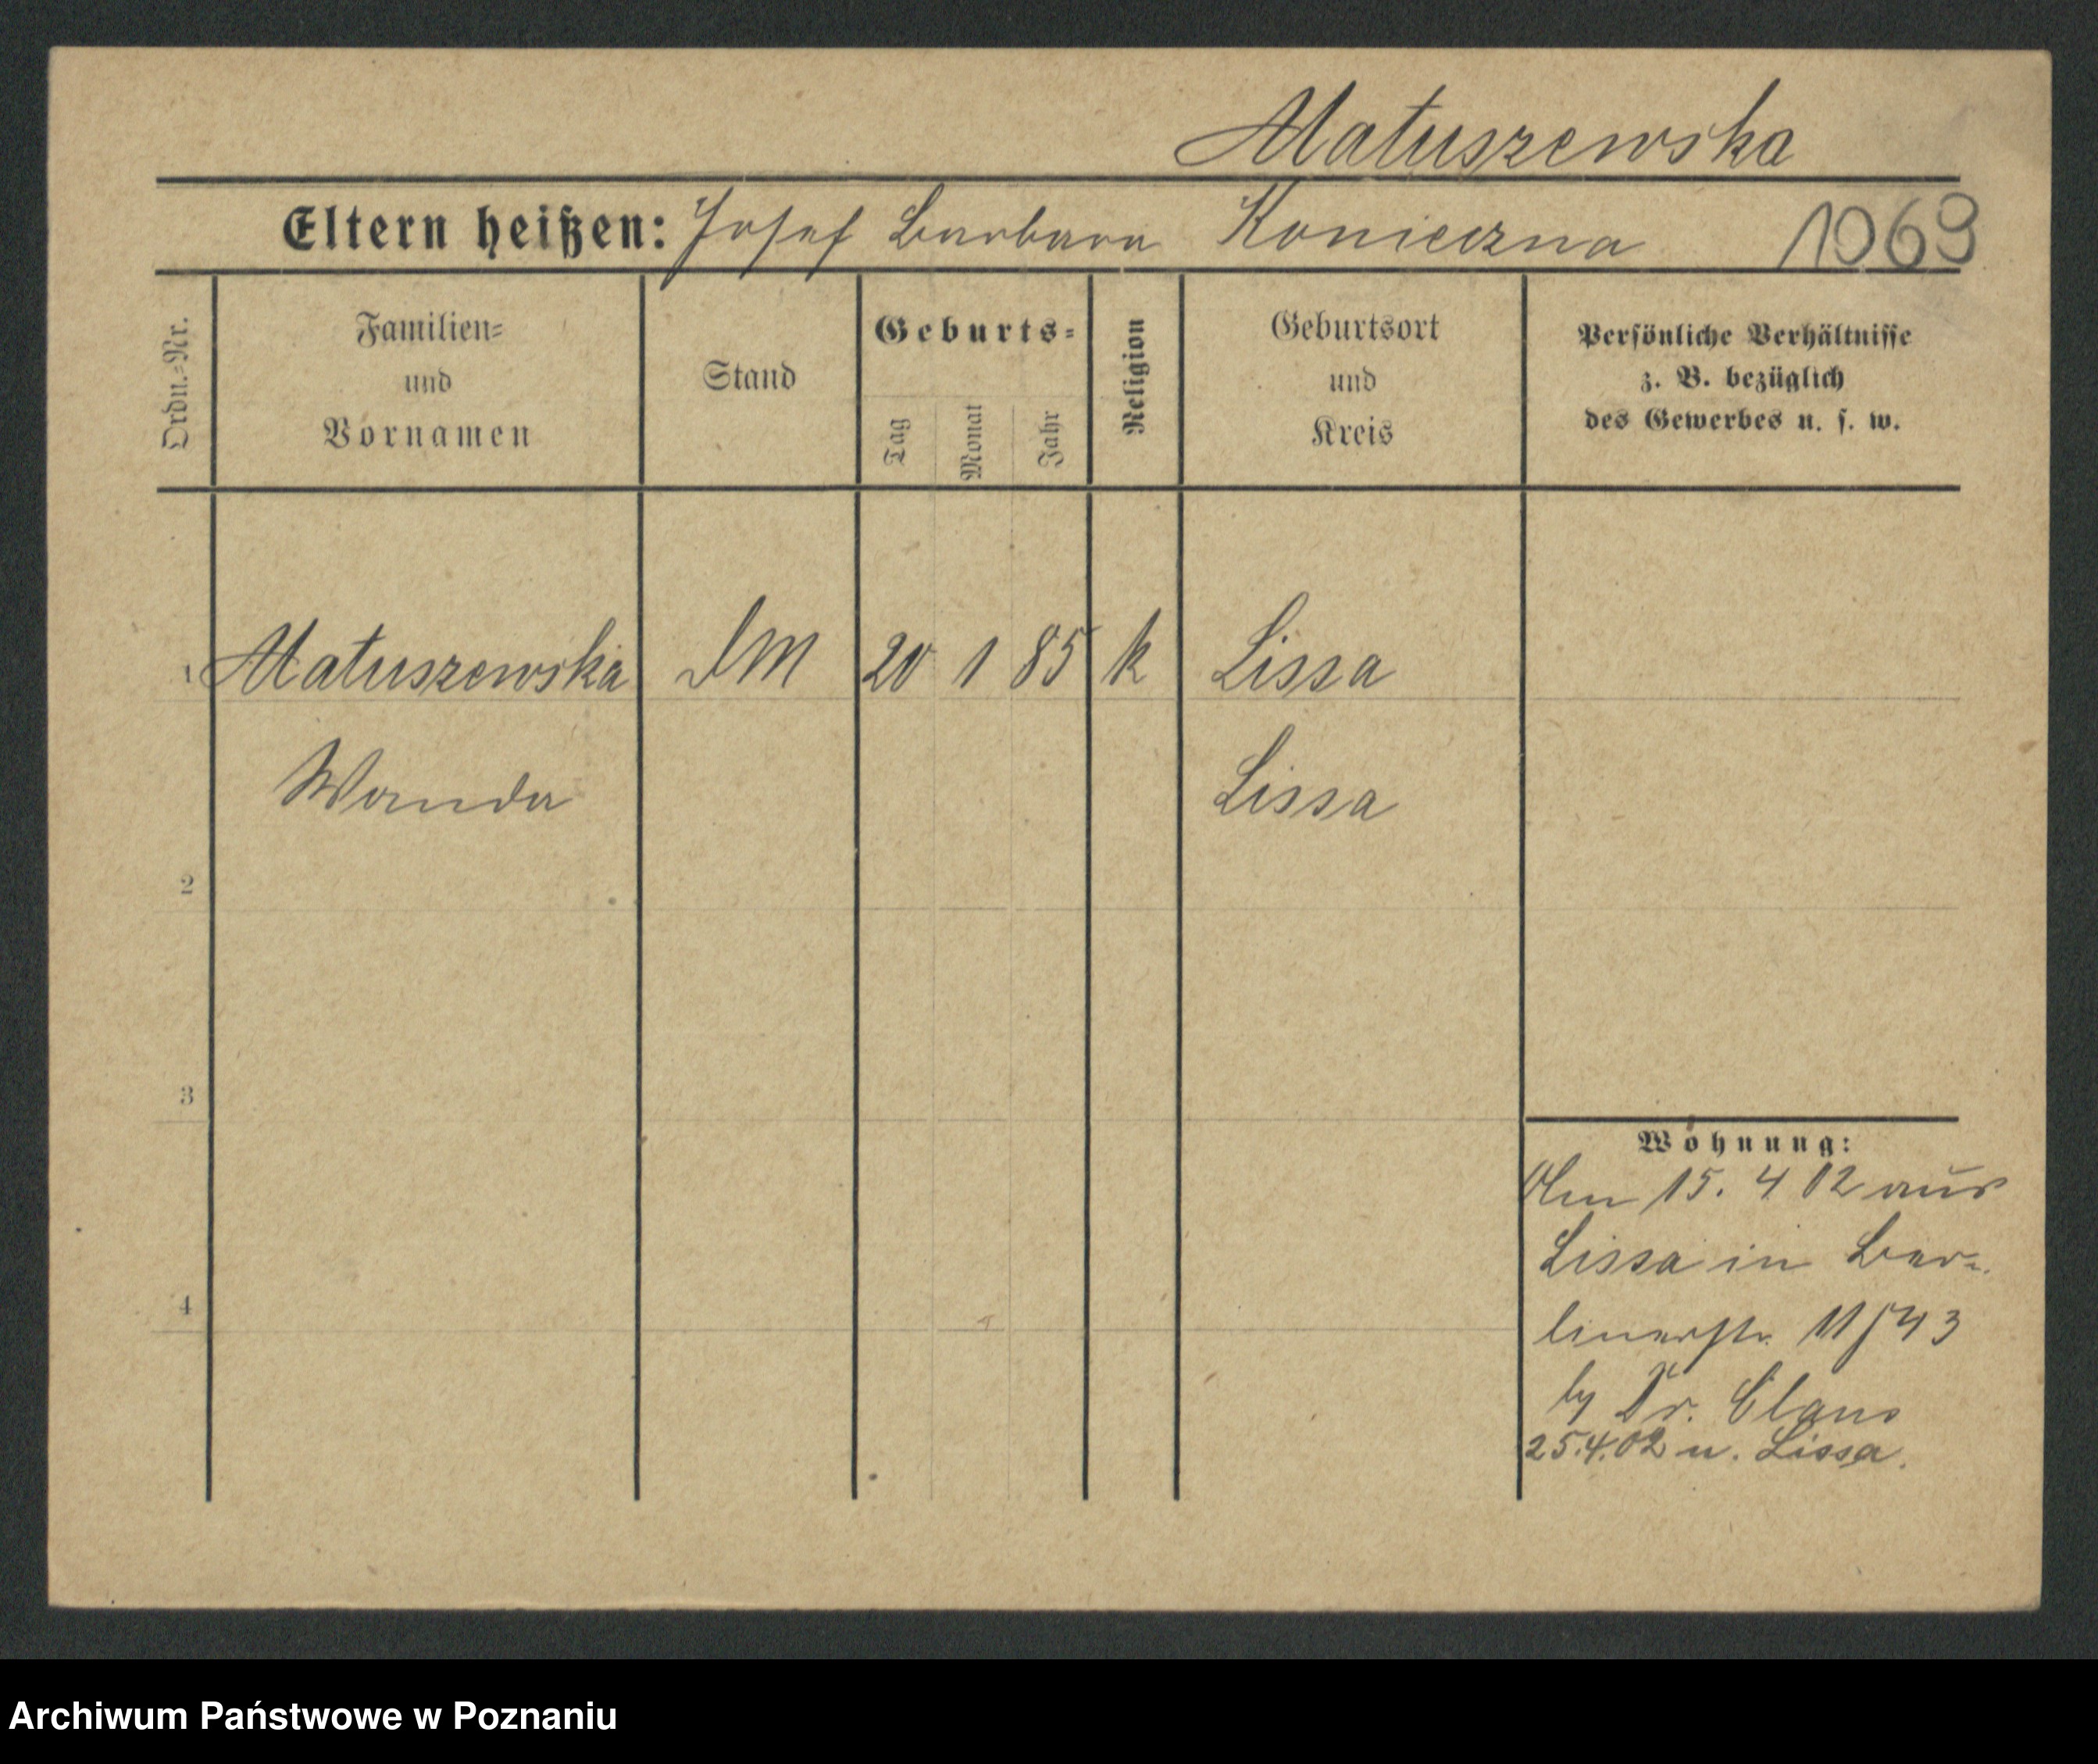 Matuszewska
Eltern heißen: Josef Barbara Konieczna 1069
Ordn.-Nr.
Familien-
und
Vornamen
Stand
Geburts-
Tag
Monat
Jahr
Religion
Geburtsort
und
Kreis
Persönliche Verhältnisse
z. B. bezüglich
des Gewerbes u. s. w.
1 Matuszewska DM 20 1 85 k Lissa
Wanda Lissa
2
3
4
Wohnung:
Am 15. 4 02 aus
Lissa in Ber-
linerstr. 11/43
by Dr. Claus
25.4.02 n. Lissa.
Archiwum Państwowe w Poznaniu